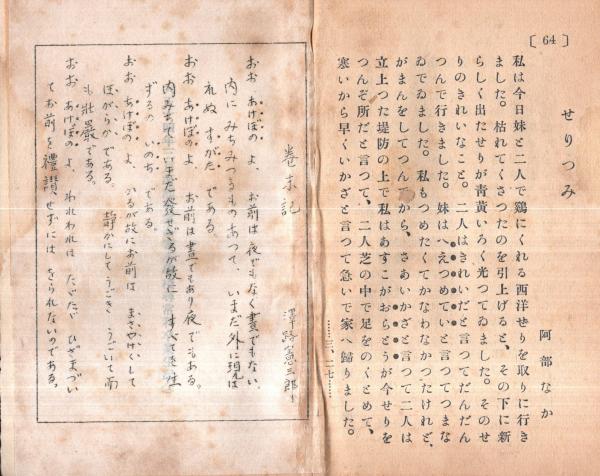 [ 64 ]
せりつみ
阿部なか
私は今日妹と二人で鶏にくれる西洋せりを取りに行き
ました。枯れてくさつたのを引上げると、その下に新
らしく出たせりが青黄いろく光つてゐました。そのせ
りのきれいなこと。二人はきれいだと言つてだんだん
つんで行きました。妹はへえつめていと言つてつまな
ゐでゐました。私もつめたくてかなわなかつたけれど、
がまんをしてつんでから、さあいかざと言つて二人は
立上つた堤防の上で私はあすこがおらとうが今せりを
つんぞ所だと言つて、二人芝の中で足をのくとめて、
寒いから早くいかざと言つて急いで家へ歸りました。
……三、一七……
巻末記
澤路憲三郎
おお あけぼの よ、お前は夜でもなく晝でもない、
内に みちみつるものあつて、いまだ外に現は
れぬ すがた である。
おお あけぼの よ、お前は晝でもあり夜でもある。
内みちて いまだ發せざるが故に すべてを生
ずるの いのち である。
おお あけぼの よ、かるが故にお前は まさやけくして
ほがらか である。静かにしてうごき うごいて而
も壯嚴である。
おお あけぼの よ、われわれは ただただ ひざまづい
てお前を禮讃せずには をられないのである。